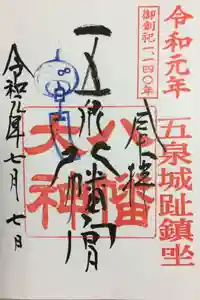 令和元年
御創祀一、一四〇年
五泉城趾鎮坐
五泉八幡宮
八幡
大神
令和元年七月七日